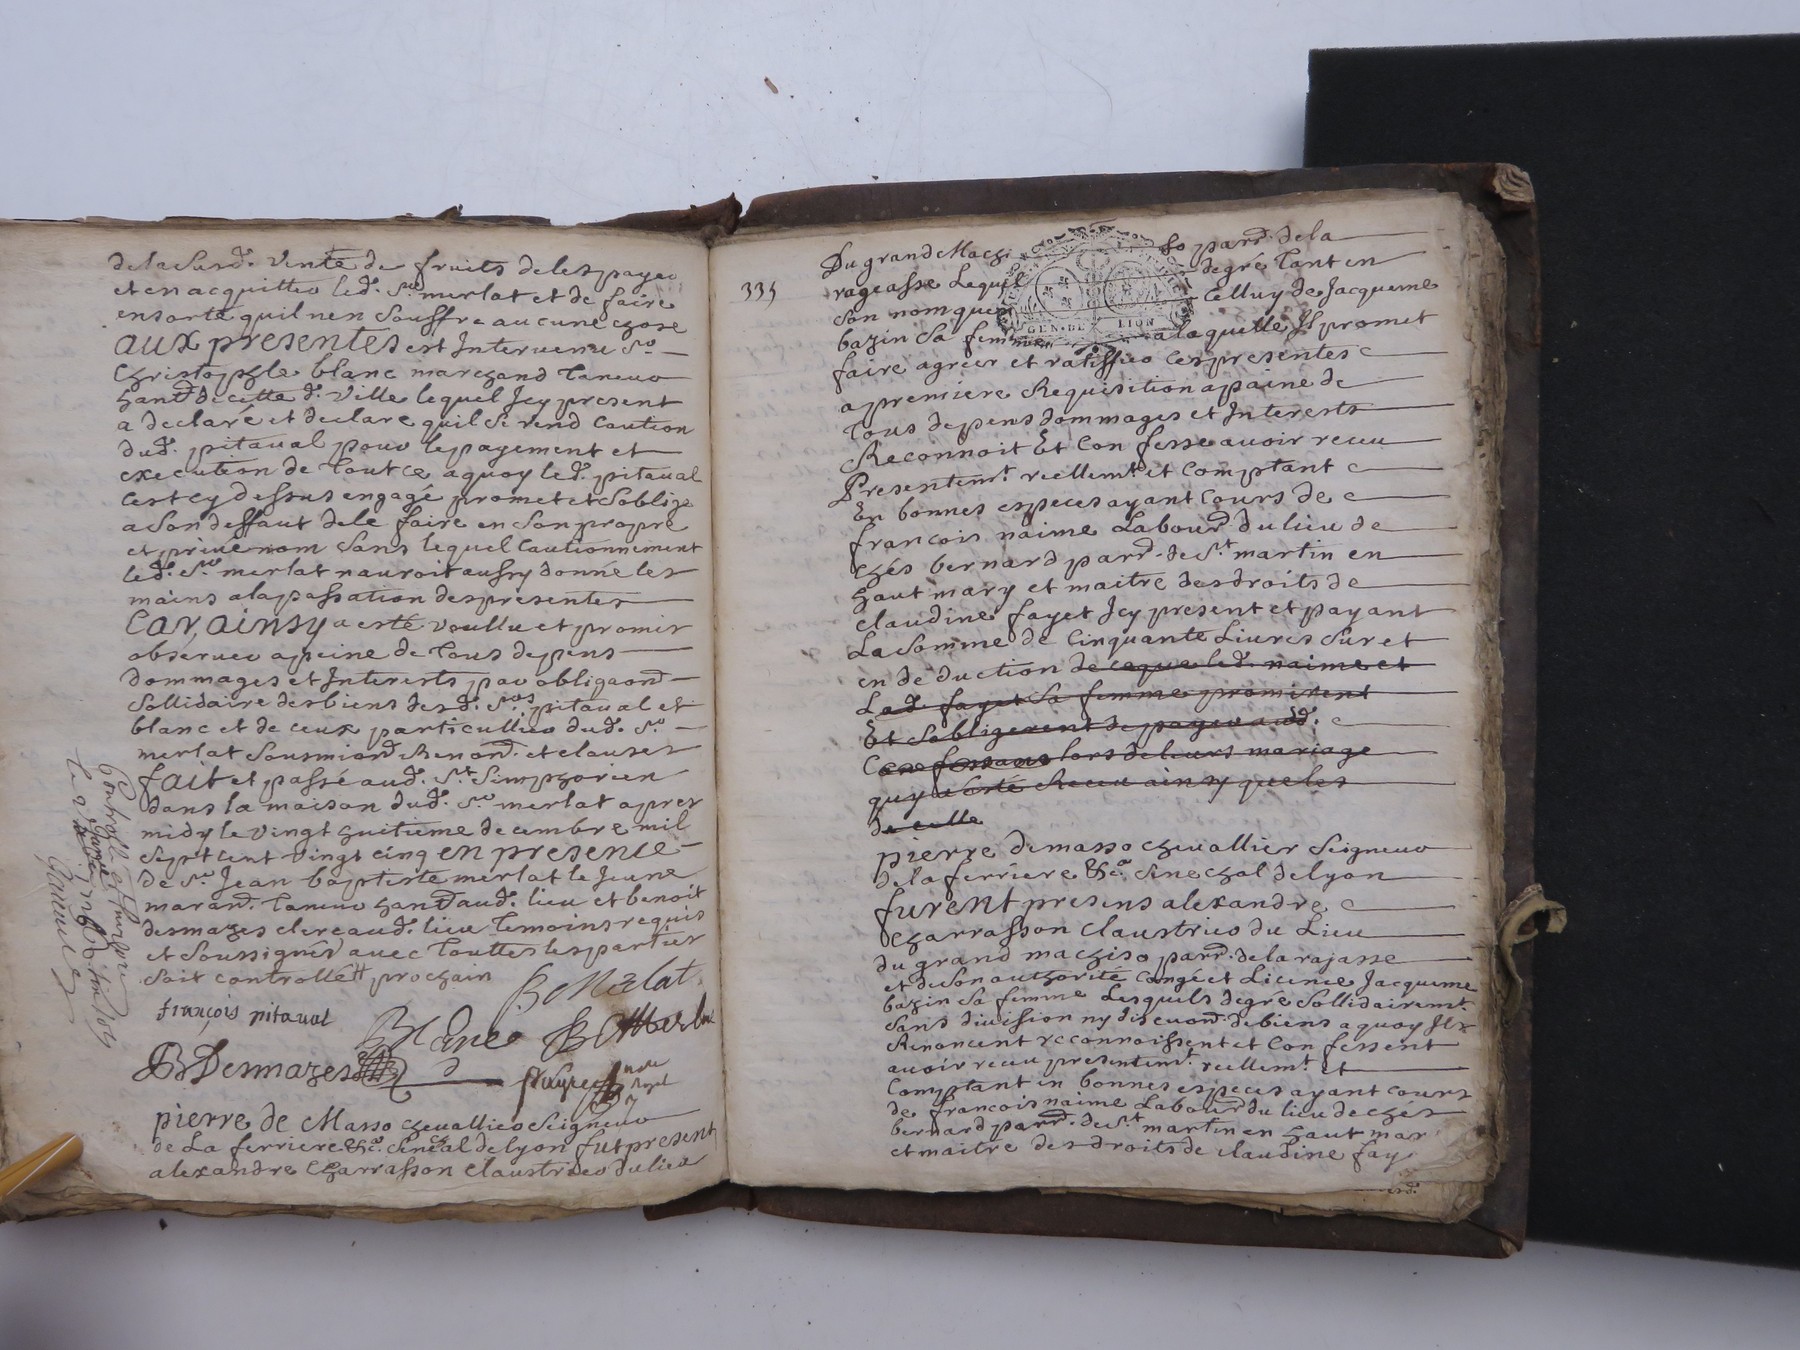 dela Susd. vente de fruits deles payer
et en acquitter led. Sr. merlat et de faire
ensorte quil nen Souffre aucune chose
aux presentes est Intervenu Sr.
Christophle blanc marchand Taneur
hant. de cette d. ville lequel Icy present
a declaré et declare quil Se rend Caution
dud. pitaval pour le payement et
execution de tout ce aquoy led. pitaval
cest cy dessus engagé promet et Soblige
a Son deffaut de le faire en Son propre
et privé nom Sans lequel Cautionnement
led. Sr. merlat nauroit aussy donné les
mains ala passation des presentes
Car, ainsy a esté voullu et promis
observer apeine de tous depens
dommages et Interests par obligaond.
Sollidaire des biens desd. Srs. pitaval et
blanc et de ceux particulliers dud. Sr.
merlat Sousmiond. Renond. et clauses
fait et passé aud. St. Simphorien
dans la maison dud. Sr. merlat apres
midy le vingt huitieme decembre mil
Sept cent vingt cinq en presence
de Sr. Jean baptiste merlat le Jeune
marand. Taneur hant. aud. lieu et benoit
desmazes clerc aud. lieu temoins requis
et Soussignés avec Touttes les parties
Soit controllé prochain
françois pitaval
B Merlat
Blanc
B Desmazes
pierre de Masso chevallier Seigneur
de La ferriere &c. Senechal de lyon fut present
alexandre Charrasson Claustrier du lieu
335
Du grand Machi so parr. de la
rageasse Lequel degré tant en
Son nom que Celluy de Jacqueme
bazin Sa femme a laquelle Il promet
faire agreer et ratiffier ces presentes
a premiere Requisition apaine de
Tous depens dommages et Interests
Reconnoit Et Confesse avoir receu
Presentemt. reellemt. et comptant
En bonnes especes ayant Cours de
francois naime Labourd. du lieu de
chés bernard parr. de St. martin en
haut mary et maitre des droits de
claudine fayet Icy present et payant
La Somme de Cinquante Livres Sur et
en deduction de ceque led. naime et
Lad. fayet Sa femme promirent
Et Sobligerent de payer aud.
Confessans lors de leurs mariage
quy a esté Receu ainsy que les
de celle
pierre demasso chevallier Seigneur
de la ferriere &c. Senechal de lyon
furent presens alexandre
Charrasson Claustrier du Lieu
du grand machiso parr. de la rajasse
et de Son authorité Congé et Licence Jacqueme
bazin Sa femme Lesquels degré Sollidairemt.
Sans division ny discuond. de biens aquoy Ils
Renoncent reconnoissent et Confessent
avoir receu presentemt. reellemt. et
Comptant en bonnes especes ayant cours
de francois naime Labourd. du lieu de chés
bernard parr. de St. martin en haut mar
et maitre des droits de claudine fay